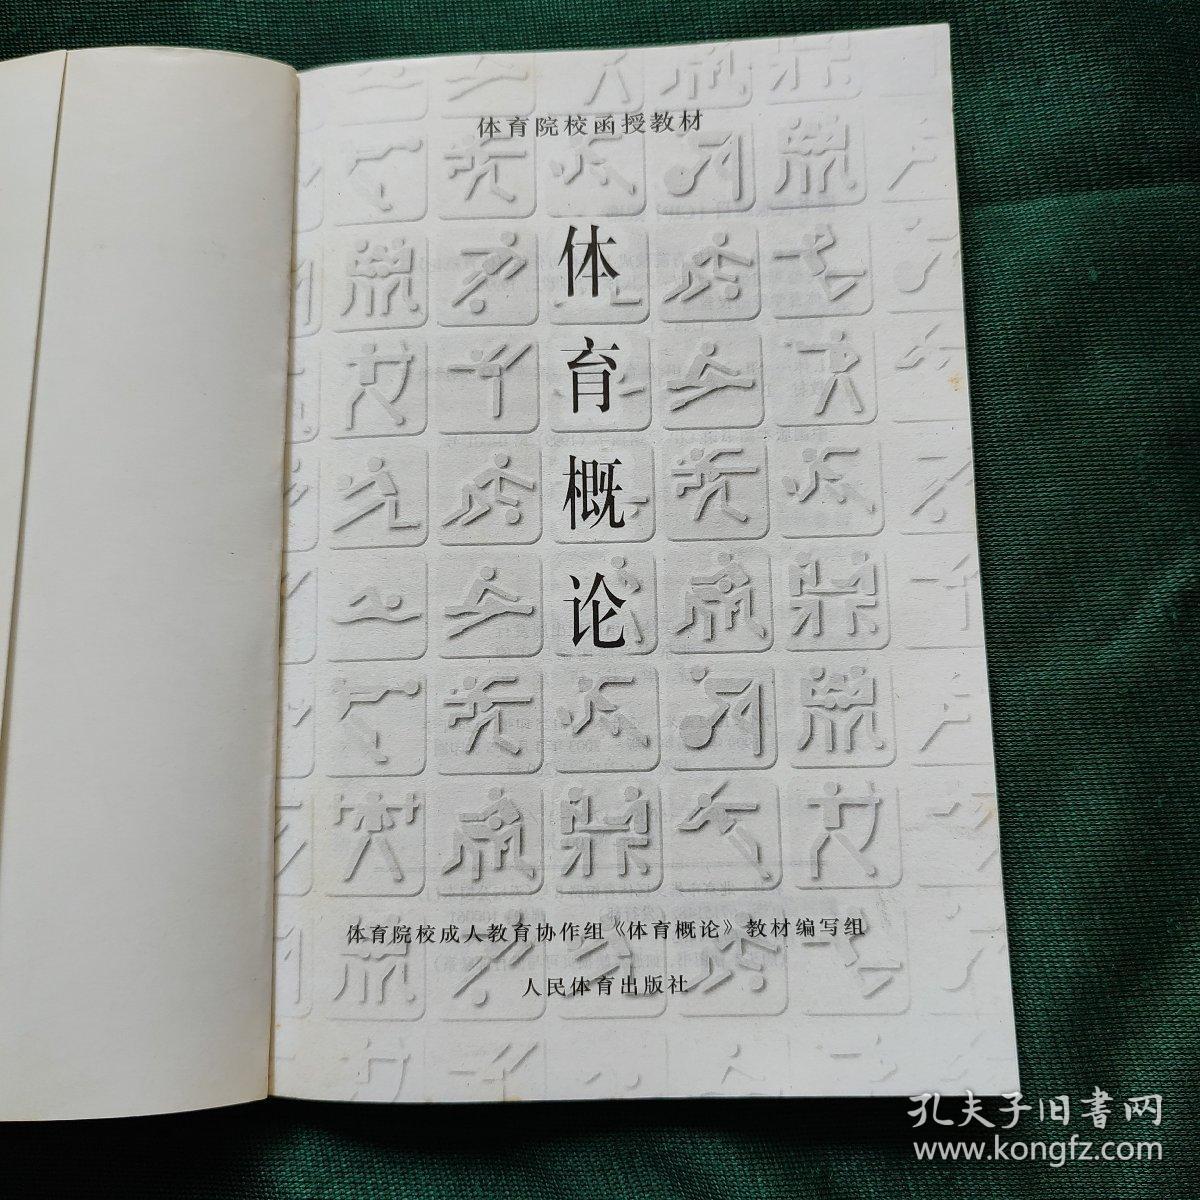 体育院校函授教材
体育概论
体育院校成人教育协作组《体育概论》教材编写组
人民体育出版社
孔夫子旧書网
www.kongfz.com